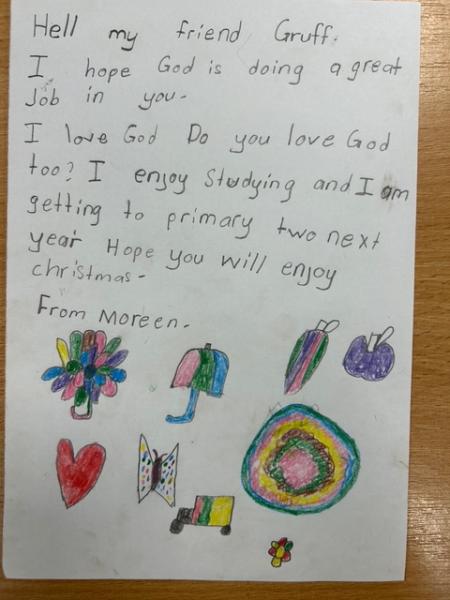 Hell my friend Gruff.
I hope God is doing a great
Job in you.
I love God Do you love God
too? I enjoy Studying and I am
getting to primary two next
year Hope you will enjoy
christmas.
From Moreen.